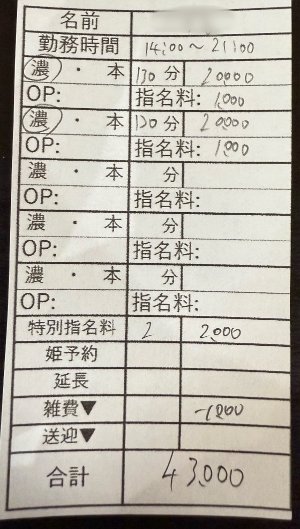 名前
勤務時間 14:00～21:00
濃 ・ 本 130分 20000
OP: 指名料: 1,000
濃 ・ 本 120分 20,000
OP: 指名料: 1,000
濃 ・ 本 分
OP: 指名料:
濃 ・ 本 分
OP: 指名料:
濃 ・ 本 分
OP: 指名料:
特別指名料 2 2,000
姫予約
延長
雑費▼ -1,000
送迎▼
合計 43,000